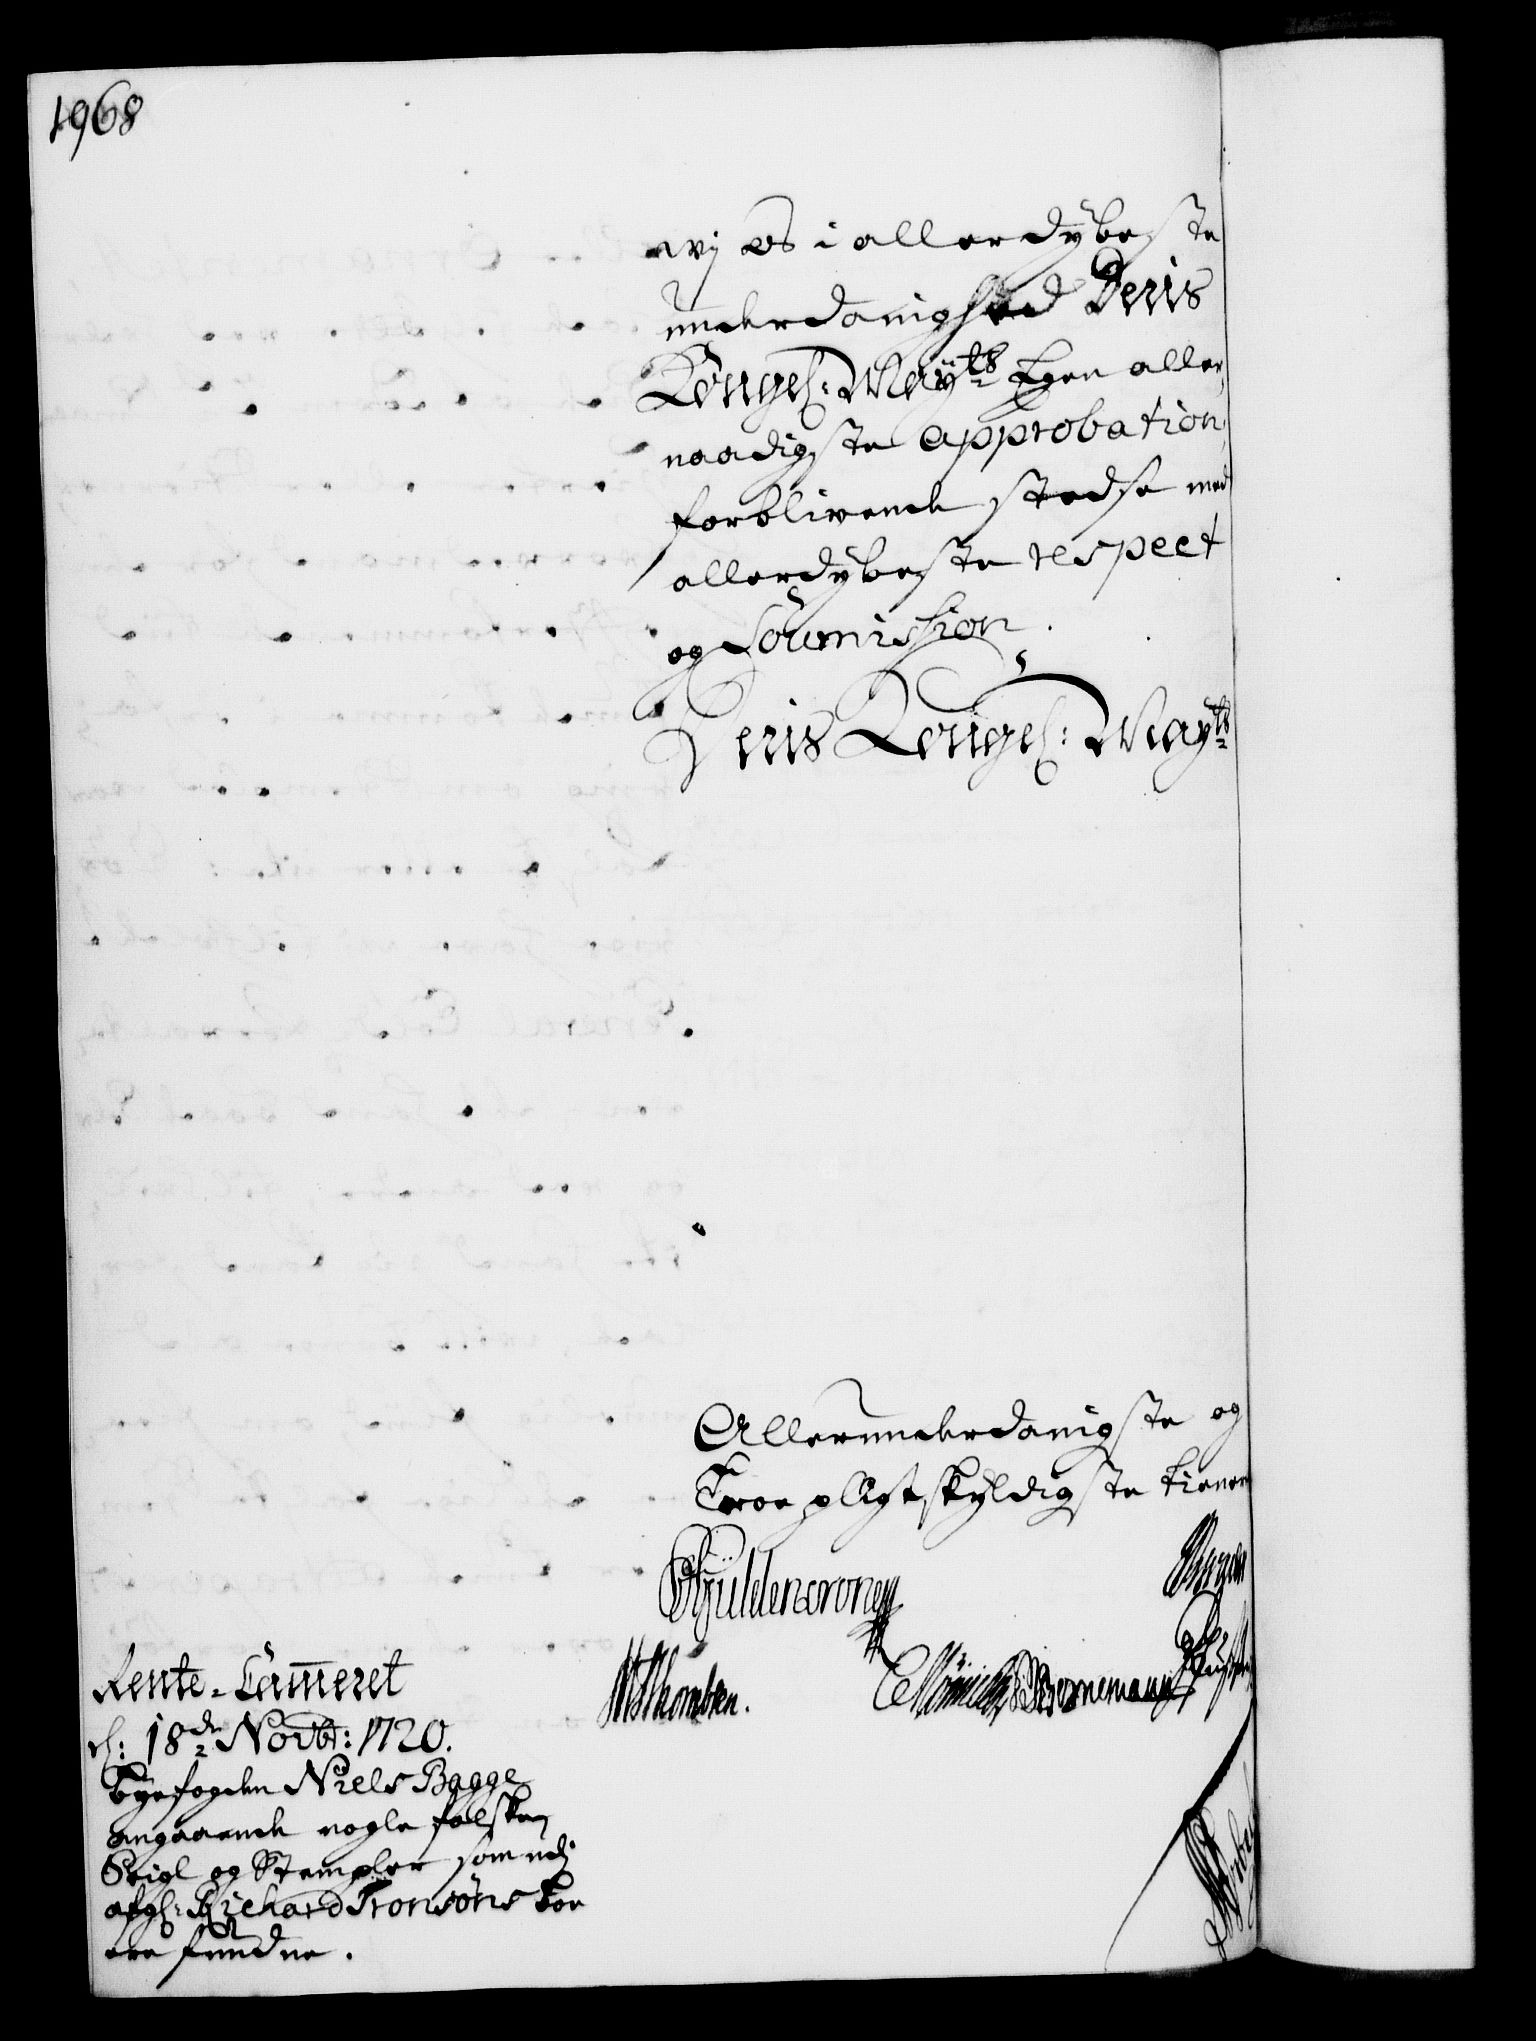 1968
wij os i allerdÿbeste
underdanighed Deris
Kongel: Maÿts Egen aller-
naadigste approbation,
forblivende stedse med
allerdÿbeste respect
og Soumission.
Deris Kongel: Mayts
Allerunderdanigste og
Troe pligtskÿldigste tiener
Gÿldencrone
WThomsen. Bornemann
Rente-Cammeret
d: 18de Novbr: 1720.
Bÿefogden Niels Bagge
angaaende nogle falske
Seigl og Stempler som udj
afgl: Richard Tronsöns boe
ere fundne.